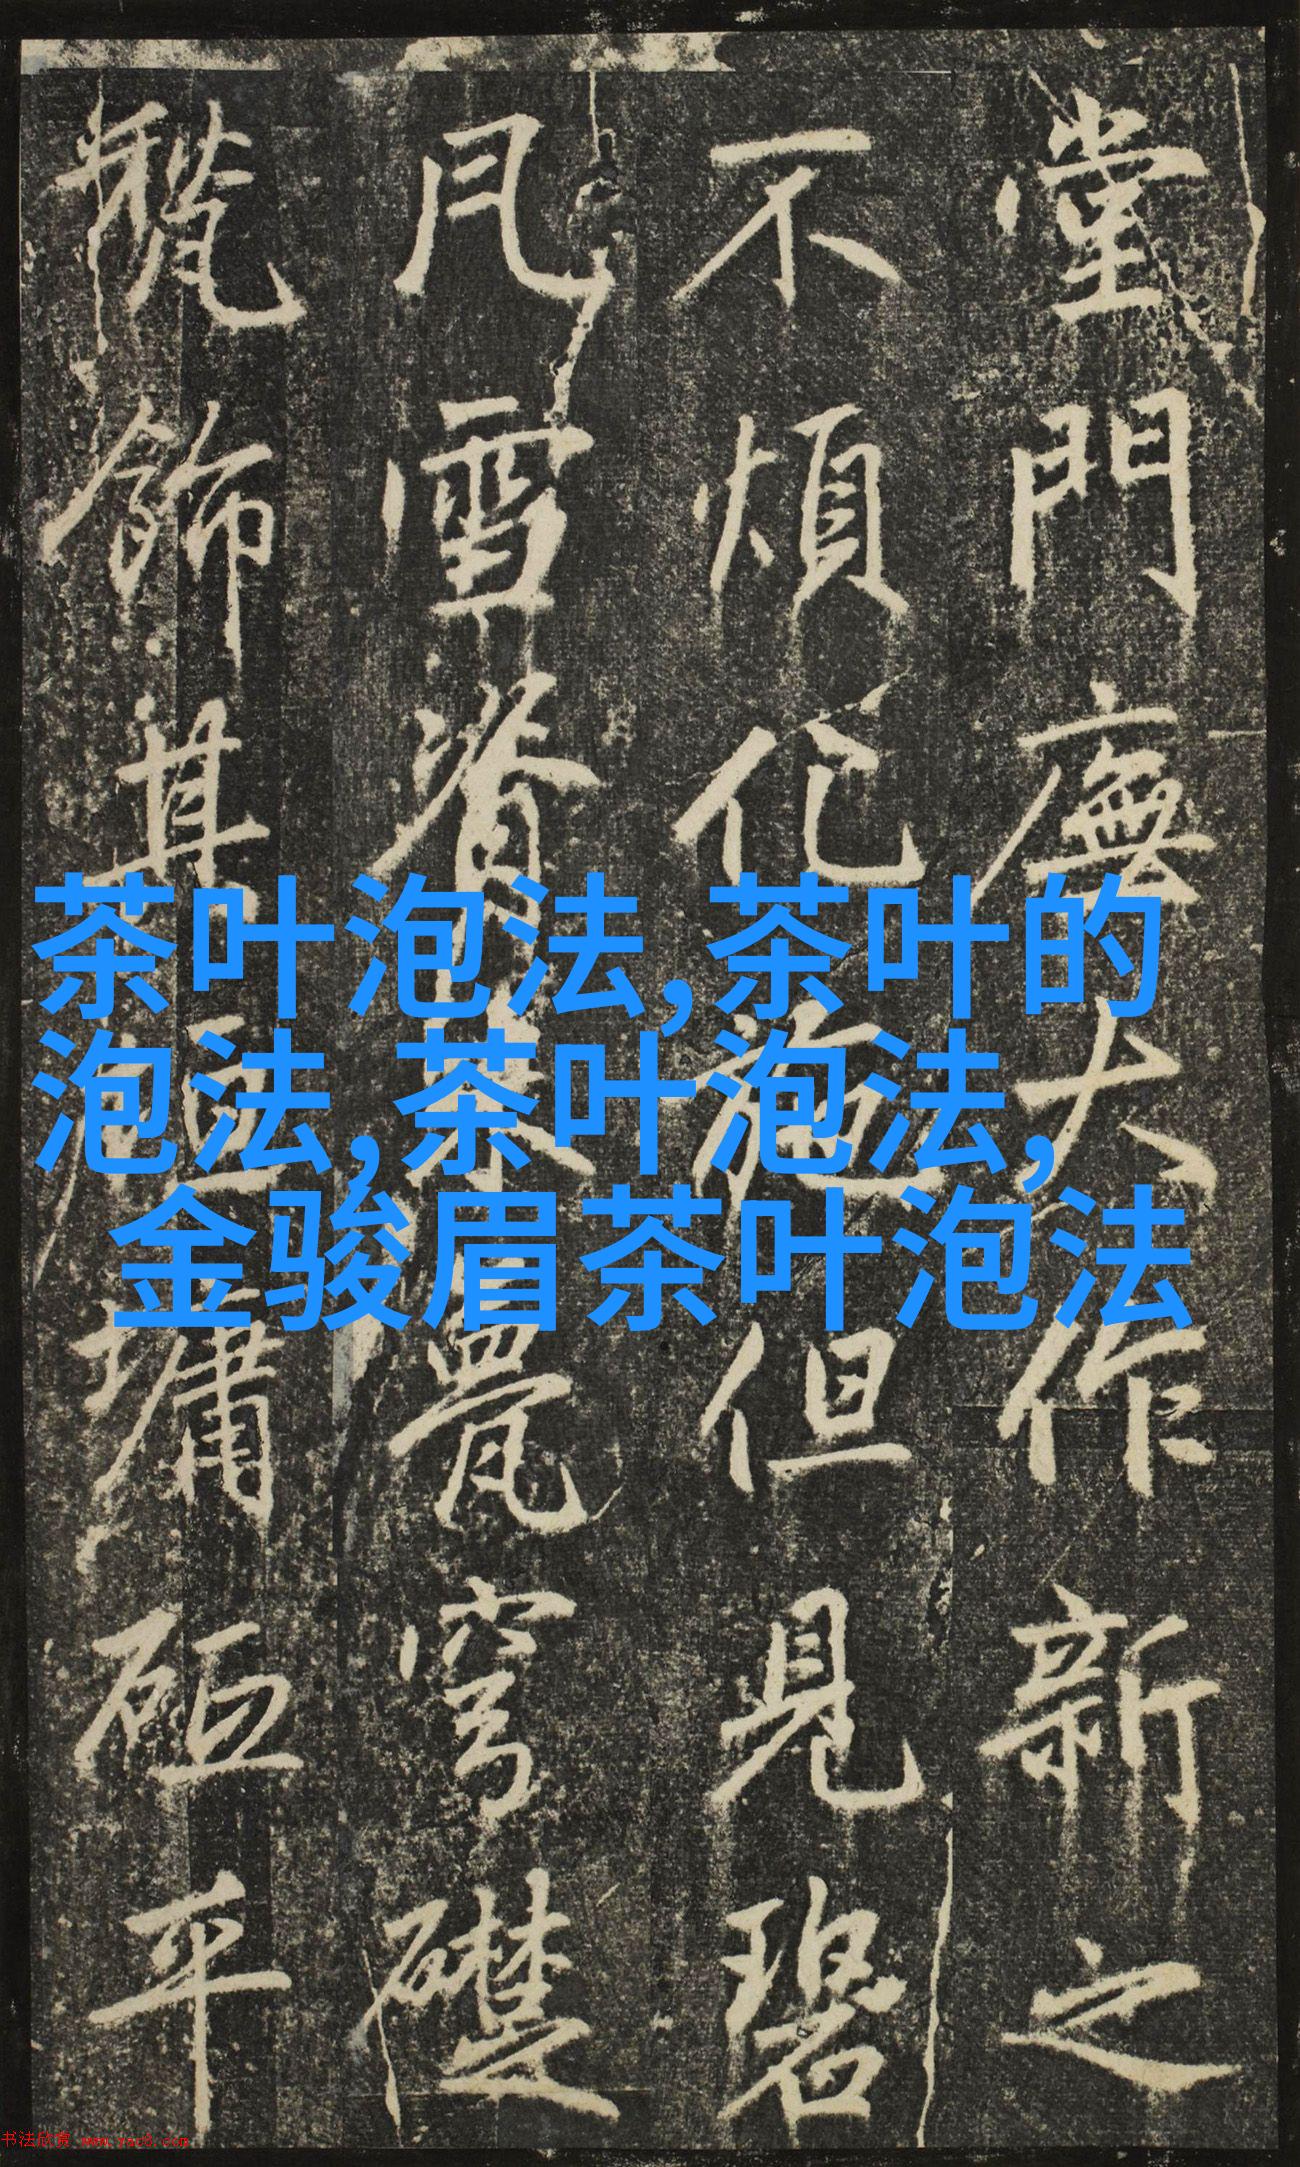 堂門廡大作新之
不煩佗施但見碧
風雪脊
甍穹礎
飾其
墉砠平
茶叶泡法,茶叶的
泡法,茶叶泡法,
金骏眉茶叶泡法
书法欣赏 www.yac8.com